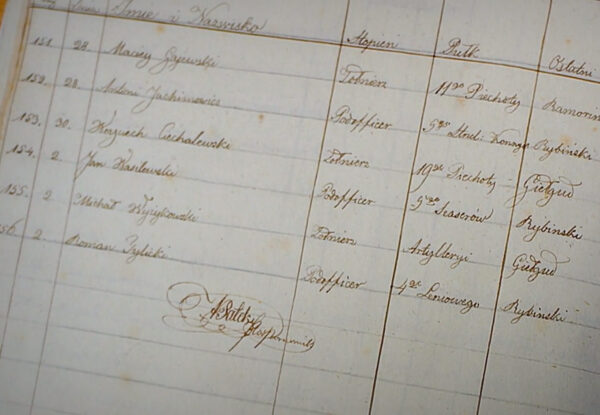 Imię i Nazwisko Stopień Pułk Ostatni
151. 28. Maciej Gajewski Żołnierz 11go Piechoty Ramorin
152. 28. Antoni Jachimowicz Podofficer 5go Strzel. Konnych Rybiński
153. 30. Woyciech Ciechalewski Żołnierz 19go Piechoty Giełgud
154. 2. Jan Wasilewski Podofficer 5go Kaserów Rybiński
155. 2 Michał Żołnierz Artylleryi Giełgud
156. 2. Roman Zylicki Podofficer 4go Leniowego Rybiński